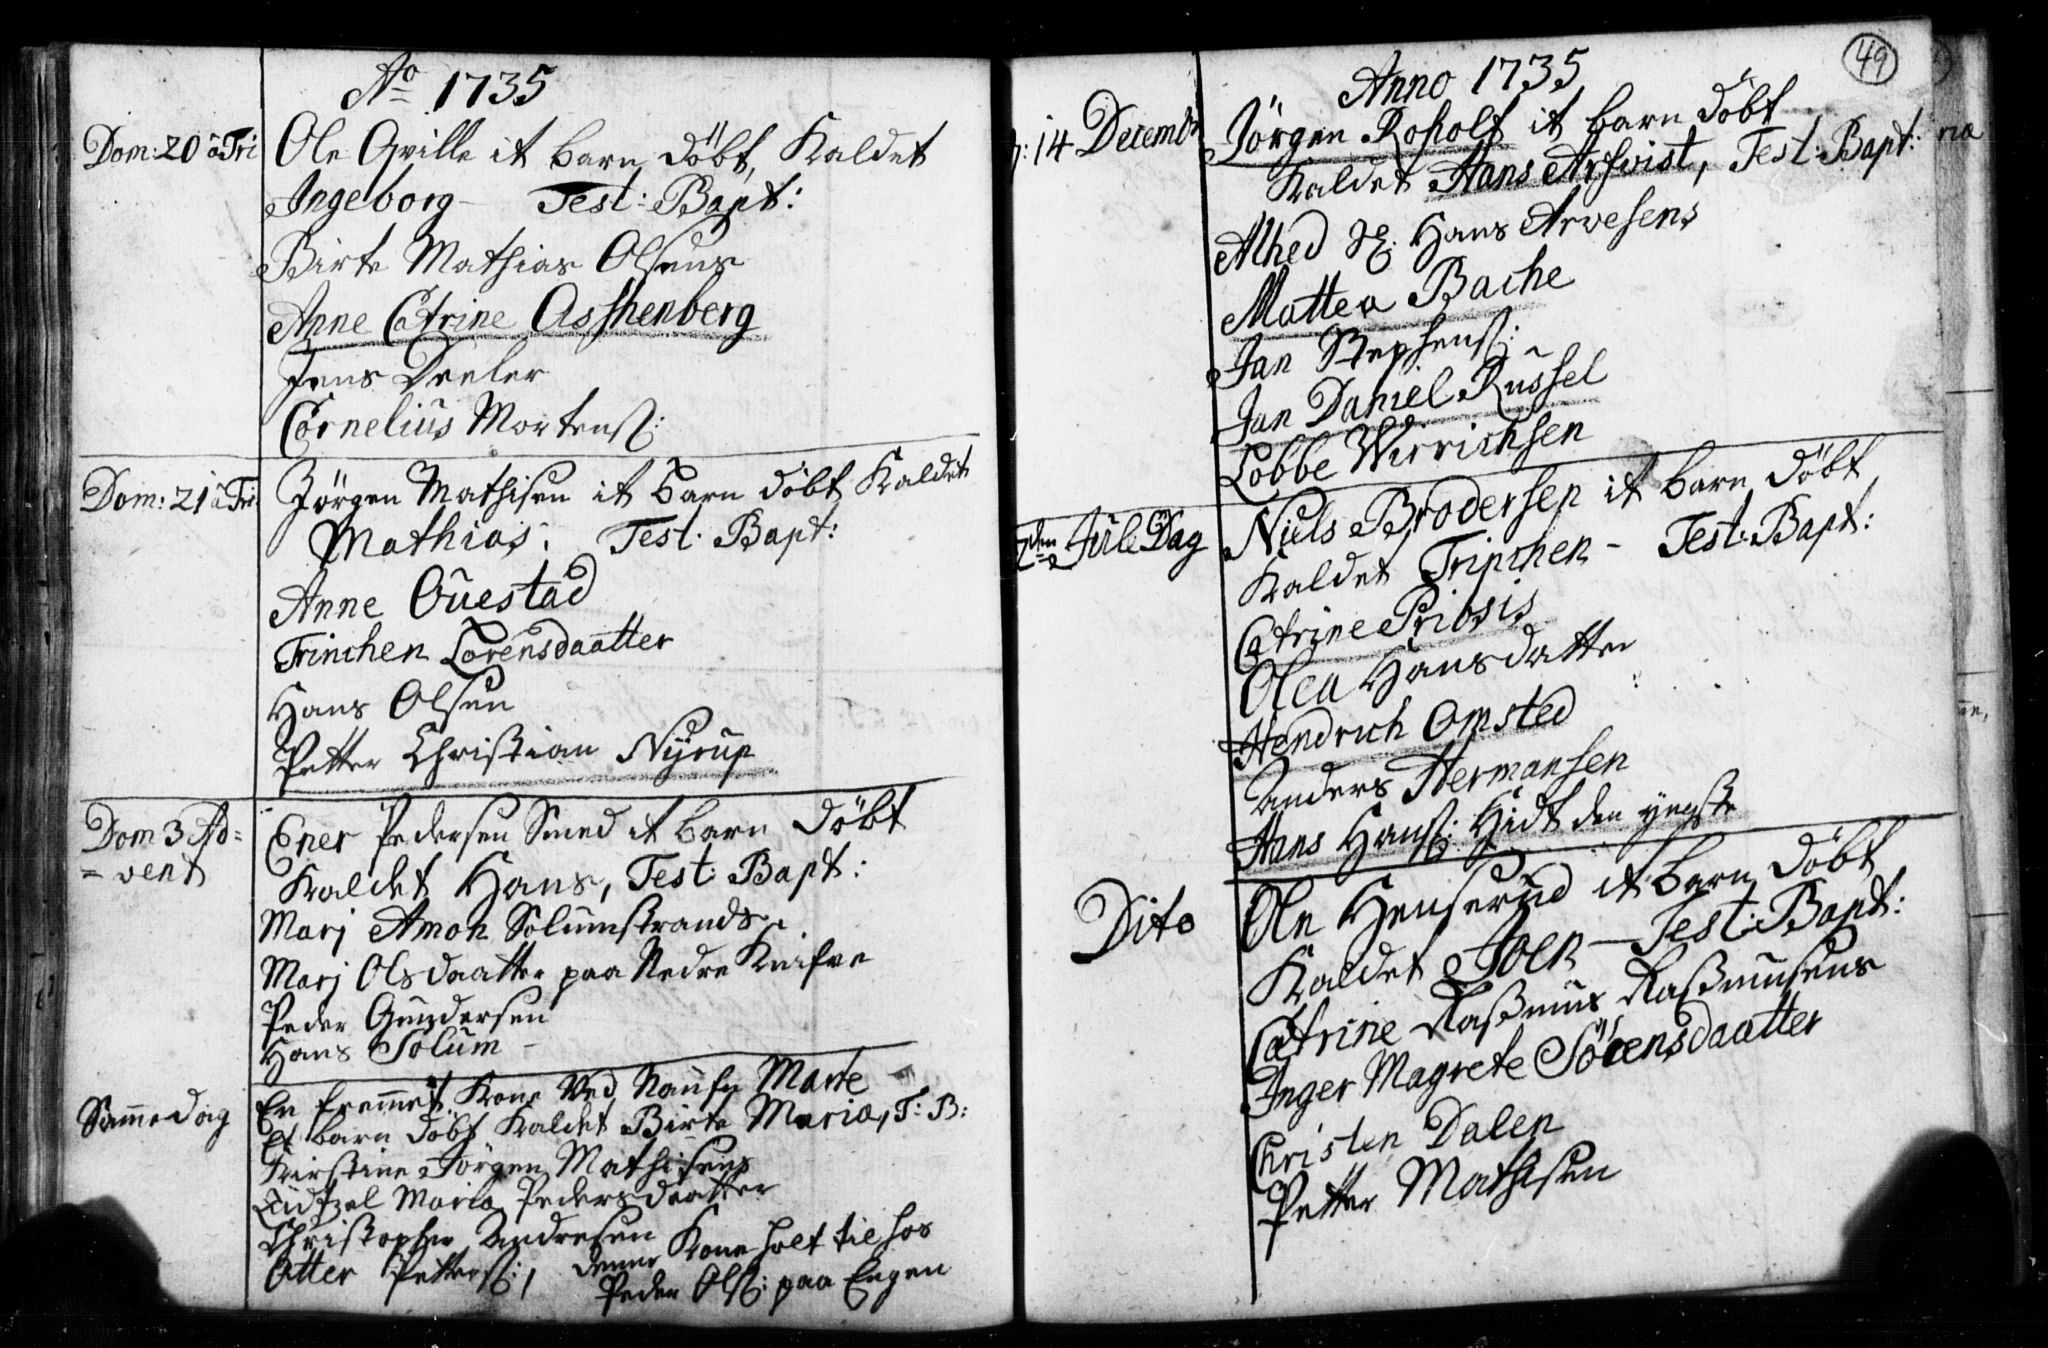 Ao 1735
Dom: 20 à Tri
Ole Qville it barn döbt, Kaldet
Ingeborg - Test: Bapt:
Birte Mathias Olsens
Anne Catrine Asshenberg
Jens
Cornelius Mortens:
Dom: 21 à Tri
Jörgen Mathisen it barn döbt Kaldet
Mathias: Test: Bapt:
Anne Ouestad
Trinchen Lorensdaatter
Hans Olsen
Petter Christian Nyrup
Dom 3 Ad=
=vent
Ener Pedersen Smed it barn döbt
Kaldet Hans, Test: Bapt:
Marj Amon Solumstrands
Marj Olsdaatter paa Nedre
Peder Gundersen
Hans Solum -
Samme dag
En fremmet Kone Ved Marie
Et barn döbt Kaldet Birte Maria, T: B:
Kirstine Jörgen Mathisens
Maria Pedersdaatter
Christopher Andresen
Otter Petters:, denne Kone holt til hos
Peder Ols: paa Engen
49
Anno 1735
14 Decembr
Jörgen Roholt it barn döbt
Kaldet Hans Arfvist, Test: Bapt:
Alhed Sl: Hans Arvesens
Mattea Bache
Jan Stephens:
Jan Daniel Russel
Lobbe Wirrichsen
2den Jule Dag
Niels Brodersen it barn döbt
Kaldet Trinchen - Test: Bapt:
Catrine Priosis
Olea Hansdatter
Hendrich Omsted
Anders Hermansen
Hans Hans: Hidt den yngste
Dito
Ole Henserud it barn döbt
Kaldet Joen - Test: Bapt:
Catrine Rasmus Rasmusens
Inger Magrete Sörensdaatter
Christen Dalen
Petter Mathisen